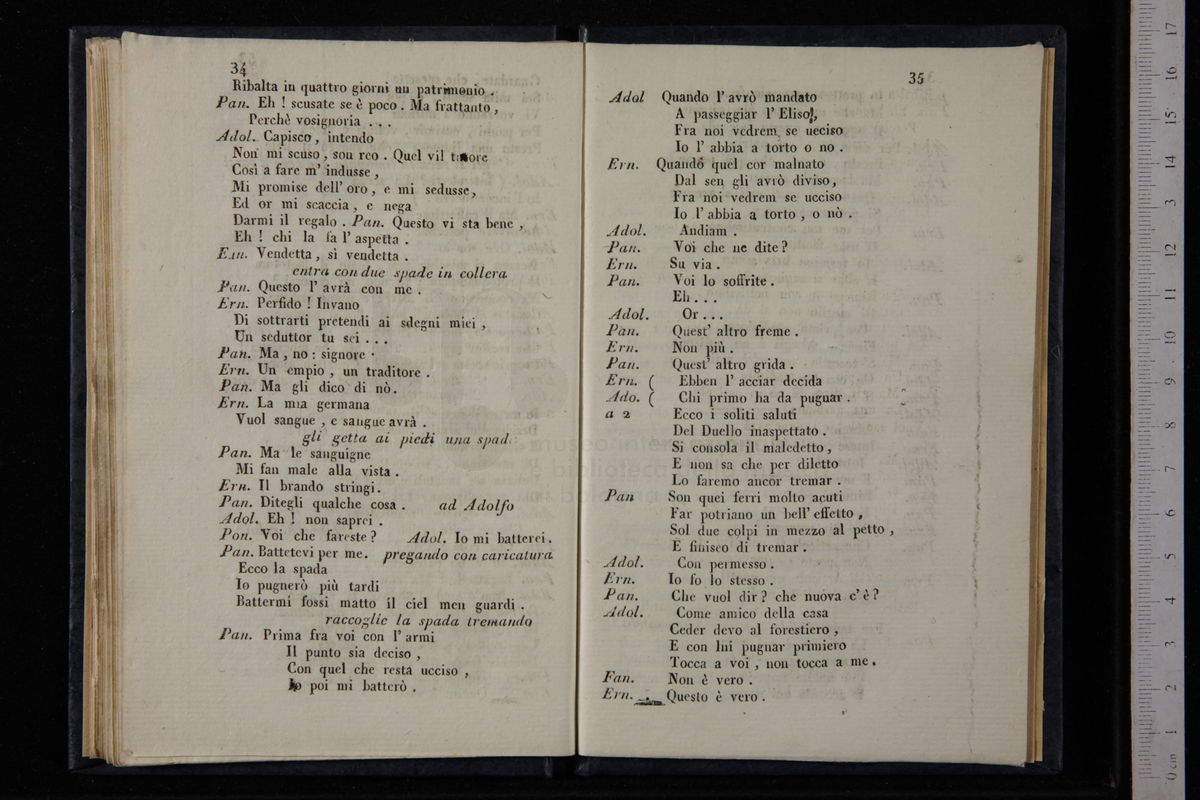 34
Ribalta in quattro giorni un patrimonio .
Pan. Eh ! scusate se è poco . Ma frattanto ,
Perchè vosignoria . . .
Adol. Capisco , intendo
Non mi scuso , son reo . Quel vil
Così a fare m' indusse ,
Mi promise dell' oro , e mi sedusse,
Ed or mi scaccia , e nega
Darmi il regalo . Pan. Questo vi sta bene ,
Eh ! chi la fa l' aspetta .
Ern. Vendetta , sì vendetta .
entra con due spade in collera
Pan. Questo l' avrà con me .
Ern. Perfido ! Invano
Di sottrarti pretendi ai sdegni miei ,
Un seduttor tu sei . . .
Pan. Ma , no : signore .
Ern. Un empio , un traditore .
Pan. Ma gli dico di nò.
Ern. La mia germana
Vuol sangue , e sangue avrà .
gli getta ai piedi una spad.
Pan. Ma le sanguigne
Mi fan male alla vista .
Ern. Il brando stringi.
Pan. Ditegli qualche cosa . ad Adolfo
Adol. Eh ! non saprei .
Pon. Voi che fareste ? Adol. Io mi batterei.
Pan. Battetevi per me. pregando con caricatura
Ecco la spada
Io pugnerò più tardi
Battermi fossi matto il ciel men guardi .
raccoglie la spada tremando
Pan. Prima fra voi con l' armi
Il punto sia deciso ,
Con quel che resta ucciso ,
Io poi mi batterò .
35
Adol Quando l' avrò mandato
A passeggiar l' Eliso,
Fra noi vedrem se ucciso
Io l' abbia a torto o no .
Ern. Quando quel cor malnato
Dal sen gli avrò diviso,
Fra noi vedrem se ucciso
Io l' abbia a torto , o nò .
Adol. Andiam .
Pan. Voi che ne dite ?
Ern. Su via .
Pan. Voi lo soffrite .
Eh . . .
Adol. Or . . .
Pan. Quest' altro freme .
Ern. Non più .
Pan. Quest' altro grida .
Ern. ( Ebben l' acciar decida
Ado. ( Chi primo ha da pugnar .
a 2 Ecco i soliti saluti
Del Duello inaspettato .
Si consola il maledetto ,
E non sa che per diletto
Lo faremo ancor tremar .
Pan Son quei ferri molto acuti
Far potriano un bell' effetto ,
Sol due colpi in mezzo al petto ,
E finisco di tremar .
Adol. Con permesso .
Ern. Io fo lo stesso .
Pan. Che vuol dir ? che nuova c' è ?
Adol. Come amico della casa
Ceder devo al forestiero ,
E con lui pugnar primiero
Tocca a voi , non tocca a me .
Fan. Non è vero .
Ern. Questo è vero .